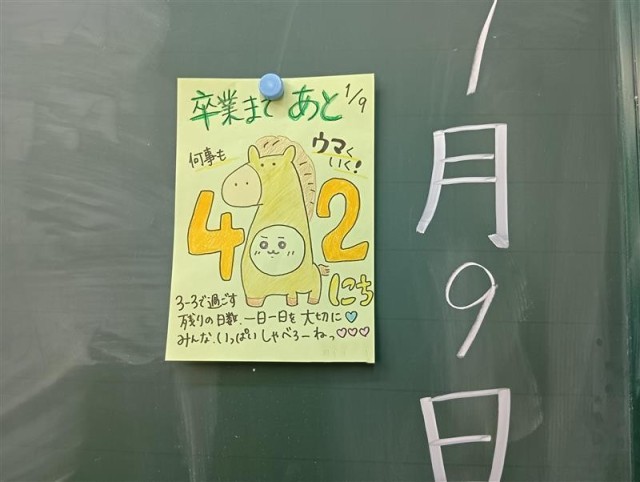 卒業まで あと 1/9
何事も ウマく
いく!
42
にち
3-3で過ごす
残りの日数、一日一日を大切に♡
みんな、いっぱいしゃべろーねっ♡♡♡
1月9日